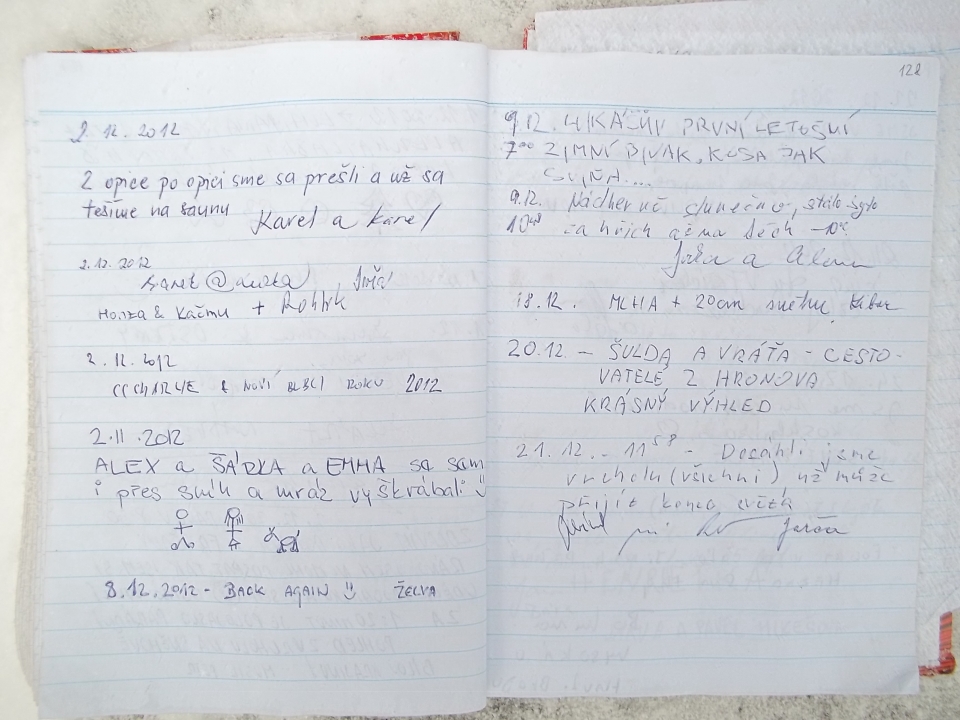 2.12.2012
2 opice po opici sme sa prešli a už sa
tešíme na saunu
Karel a Karel
2.12.2012
& Kačmu + Rohlík
2.12.2012
& NOVÍ ROKU 2012
2.11.2012
ALEX a ŠÁRKA a EMMA sa sam
i přes sníh a mráz vyškrábali
8.12.2012 - BACK AGAIN ŽELVA
122
9.12. PRVNÍ LETOŠNÍ
7⁰⁰ ZIMNÍ BIVAK, KOSA JAK
SVIŇA....
9.12. Nádherně slunečno, stálo
10⁴⁸ za hřích -10°C
Jirka a Alena
18.12. MLHA + 20cm sněhu
20.12. - ŠULDA A VRÁŤA - CESTO-
VATELÉ Z HRONOVA
KRÁSNÝ VÝHLED
21.12. - 11⁵⁸ - Dosáhli jsme
vrcholu (všichni) už může
přijít konec světa